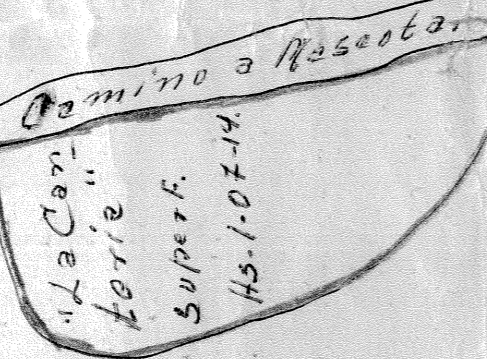 Camino a Mascota.
"La Can-
teria"
Superf.
Hs. 1-07-14.